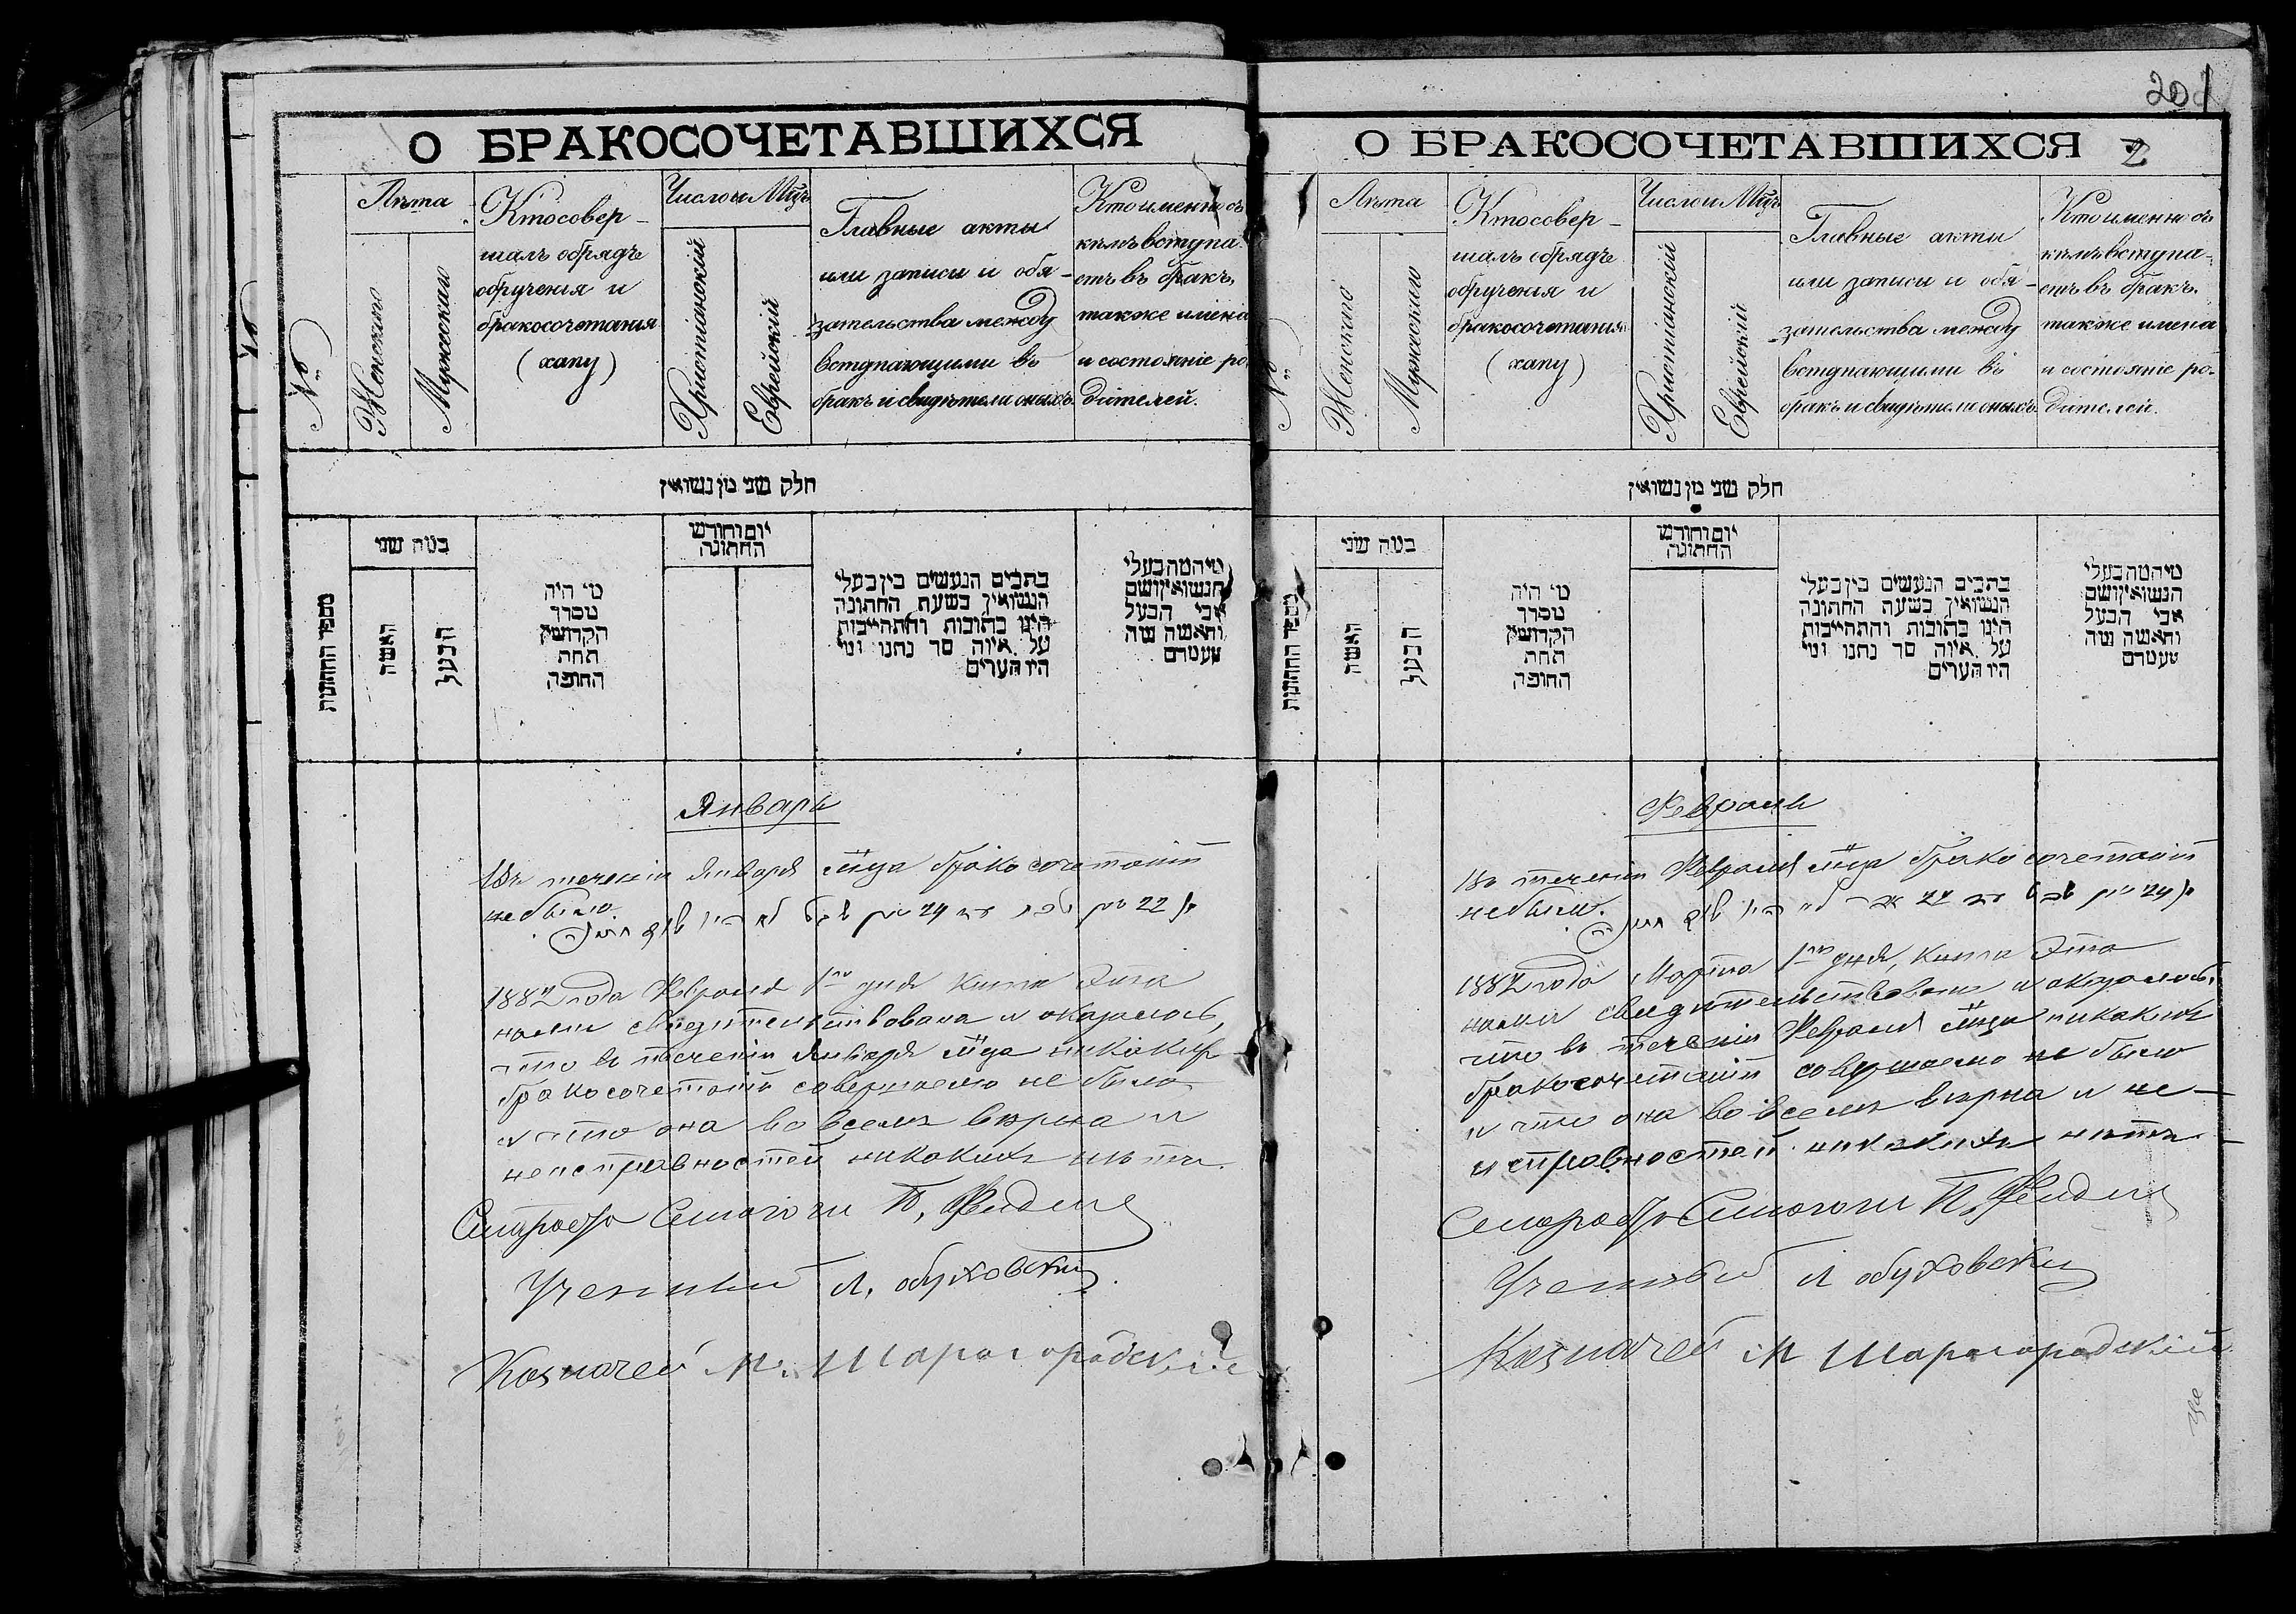 О БРАКОСОЧЕТАВШИХСЯ
№
Лѣта
Женскаго
Мужескаго
Кто совер-
шалъ обрядъ
обрученія и
бракосочетанія
(хапу)
Число и Мцъ
Христіанскій
Еврейскій
Главные акты
или записи и обя-
зательства между
вступающими въ
бракъ и свидѣтели оныхъ
Кто именно съ
кѣмъ вступа-
етъ въ бракъ,
также имена
и состояніе ро-
дителей.
חלק שני מן נשואין
מספר החתונות
כמה שני
האשה
הבעל
מי היה
מסדר
הקדושין
תחת
החופה
יום וחודש
החתונה
כתבים הנעשים בין בעלי
הנשואין בשעת החתונה
היינו כתובות והתחייבות
על איזה סך נתנו ומי
היו העדים
מיהמה בעלי
הנשואין ושם
אבי הבעל
והאשה
מעמדם
Январь
Въ теченіи Января мца бракосочетаній
не было.
1887 года Февраля 1го дня книга эта
нами свидетельствована и оказалось,
что въ теченіи Января мца никакихъ
бракосочетаній совершаемо не было
и что она во всемъ вѣрна и
неисправностей никакихъ нѣтъ.
Староста Синагоги П. Фидель
Ученный Л. Обуховскій
Казначей М. Шарогородскій
201
О БРАКОСОЧЕТАВШИХСЯ 2
№
Лѣта
Женскаго
Мужескаго
Кто совер-
шалъ обрядъ
обрученія и
бракосочетанія
(хапу)
Число и Мцъ
Христіанскій
Еврейскій
Главные акты
или записи и обя-
зательства между
вступающими въ
бракъ и свидѣтели оныхъ
Кто именно съ
кѣмъ вступа-
етъ въ бракъ,
также имена
и состояніе ро-
дителей.
חלק שני מן נשואין
מספר החתונות
כמה שני
האשה
הבעל
מי היה
מסדר
הקדושין
תחת
החופה
יום וחודש
החתונה
כתבים הנעשים בין בעלי
הנשואין בשעת החתונה
היינו כתובות והתחייבות
על איזה סך נתנו ומי
היו העדים
מיהמה בעלי
הנשואין ושם
אבי הבעל
והאשה
מעמדם
Февраль
Въ теченіи Февраля мца бракосочетаній
не было.
1887 года Марта 1го дня, книга эта
нами свидетельствована и оказалось,
что въ теченіи Февраля мца никакихъ
бракосочетаній совершаемо не было
и что она во всемъ вѣрна и не-
исправностей никакихъ нѣтъ.
Староста Синагоги П. Фидель
Ученный Л Обуховскій
Казначей М Шарогородскій